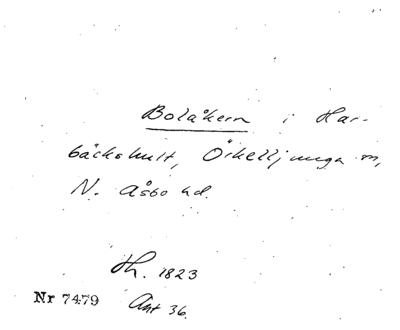 Bolåkern i Har-
bäckshult, Örkelljunga sn,
N. Åsbo hd.
Th. 1823
Nr 7479 Akt 36.